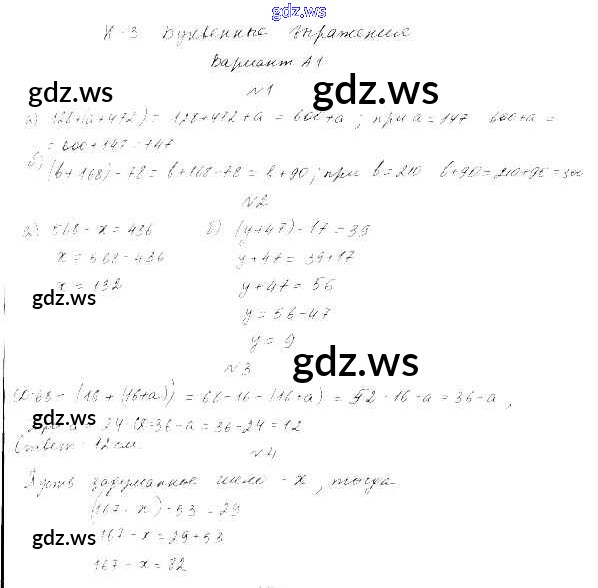 gdz.ws
К-3 Буквенные выражения
Вариант А1
gdz.ws gdz.ws
№1
а) 128+(a+472) = 128+472+a = 600+a ; при a=147 600+a =
= 600+147=747
б) (b+168)-78 = b+168-78 = b+90; при b=210 b+90=210+90=300
№2
а) 568-x=436 б) (y+47)-17=39
x=568-436 y+47=39+17
x=132 y+47=56
gdz.ws
y=56-47
y=9
gdz.ws
№3
(16+(16+a)) = 68-16-(16+a) = 52-16-a=36-a,
gdz.ws
a=24 =36-a=36-24=12
Ответ: 12 см.
№4
Пусть задуманное число - x, тогда
(167-x)-53=29
gdz.ws 167-x=29+53
167-x=82
gdz.ws